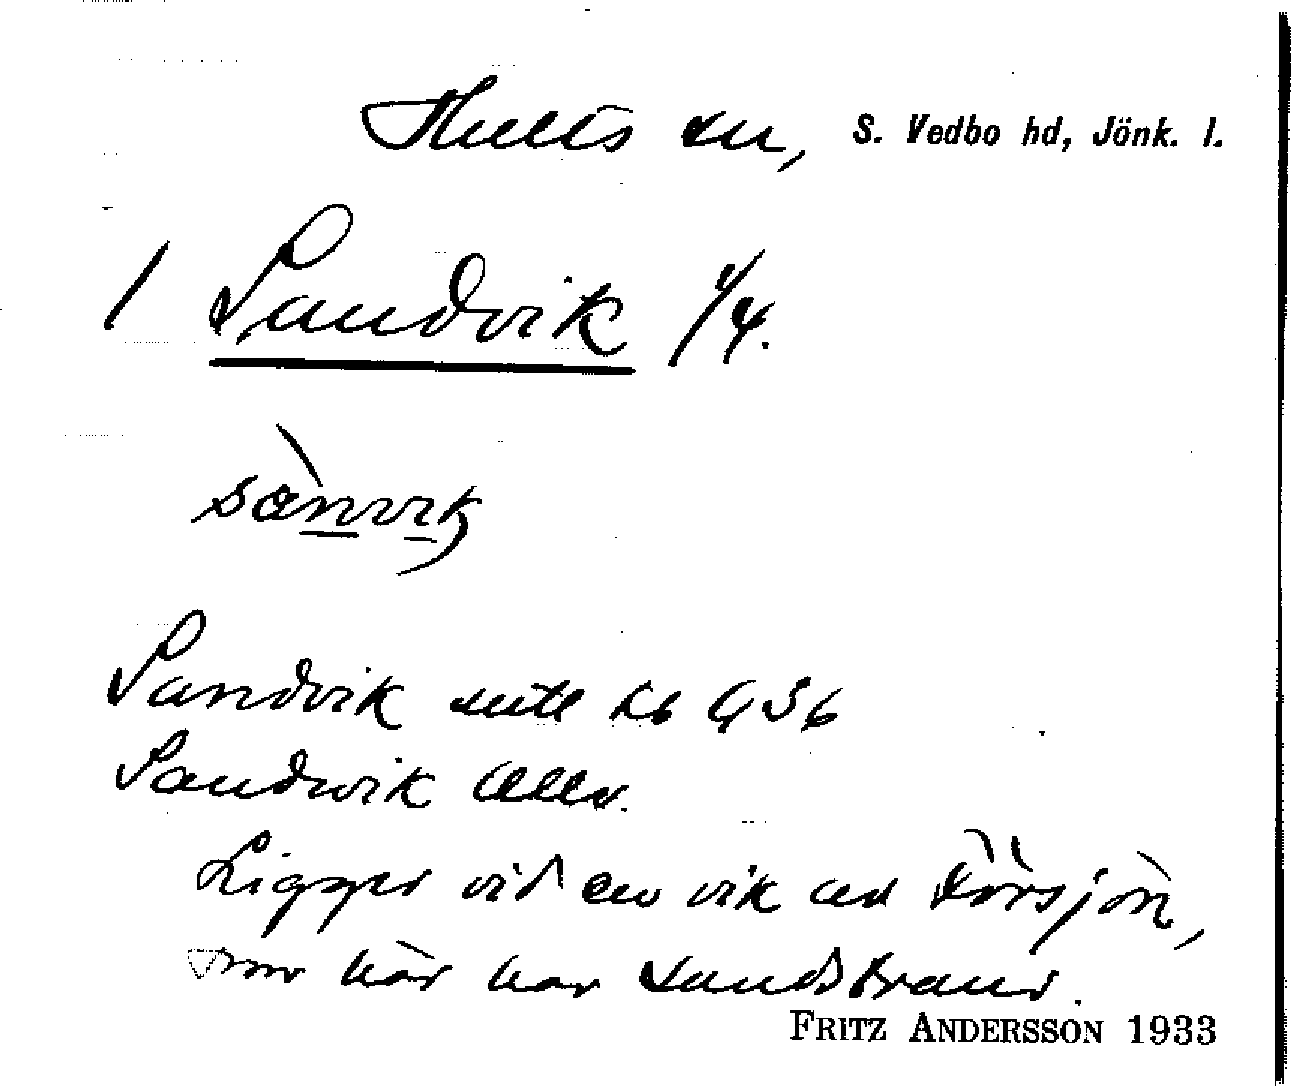 Hults sn, S. Vedbo hd, Jönk. l.
1 Sandvik 1/4.
sànvik
Sandvik mtl kb G 56
Sandwik
Ligger vid en vik av Försjön,
som här har sandstrand.
FRITZ ANDERSSON 1933